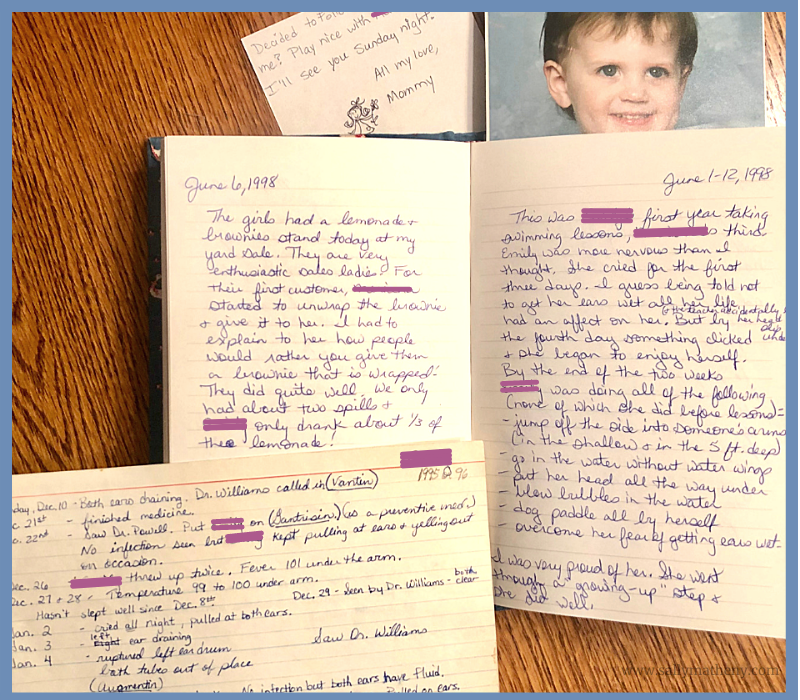 Decided to
me? Play nice with
I'll see you Sunday night.
All my love,
Mommy
June 6, 1998
The girls had a lemonade &
brownies stand today at my
yard sale. They are very
enthusiastic sales ladies! For
their first customer,
started to unwrap the brownie
& give it to her. I had to
explain to her how people
would rather you give them
a brownie that is wrapped!
They did quite well. We only
had about two spills &
only drank about 1/3 of
the lemonade!
June 1-12, 1998
This was first year taking
swimming lessons, s third.
Emily was more nervous than I
thought. She cried for the first
three days. I guess being told not
to get her ears wet all her life
& the teacher accidentally
had an affect on her. But by her head
the fourth day something clicked under
& she began to enjoy herself.
By the end of the two weeks
was doing all of the following
(none of which she did before lessons)=
- jump off the side into someone's arms
(in the shallow & in the 5 ft. deep)
- go in the water without water wings
- put her head all the way under
- blow bubbles in the water
- dog paddle all by herself
- overcome her fear of getting ears wet
I was very proud of her. She went
through a "growing-up" step &
she did well.
1995 & 96
day, Dec. 10 - Both ears draining. Dr. Williams called in (Vantin)
c. 21st - finished medicine.
c. 22nd - Saw Dr. Powell. Put on (Gantrisin) (as a preventive med.)
No infection seen but kept pulling at ears & yelling out
on occasion.
Dec. 26 threw up twice. Fever 101 under the arm.
Dec. 27 & 28 - Temperature 99 to 100 under arm.
Hasn't slept well since Dec. 8th Dec. 29 - Seen by Dr. Williams - both clear
Jan. 2 - cried all night, pulled at both ears.
Jan. 3 - left ear draining Saw Dr. Williams
Jan. 4 - ruptured left ear drum
both tubes out of place
(Augmentin)
No infection but both ears have fluid.
Pulled on ears.
www.sallymatheny.com